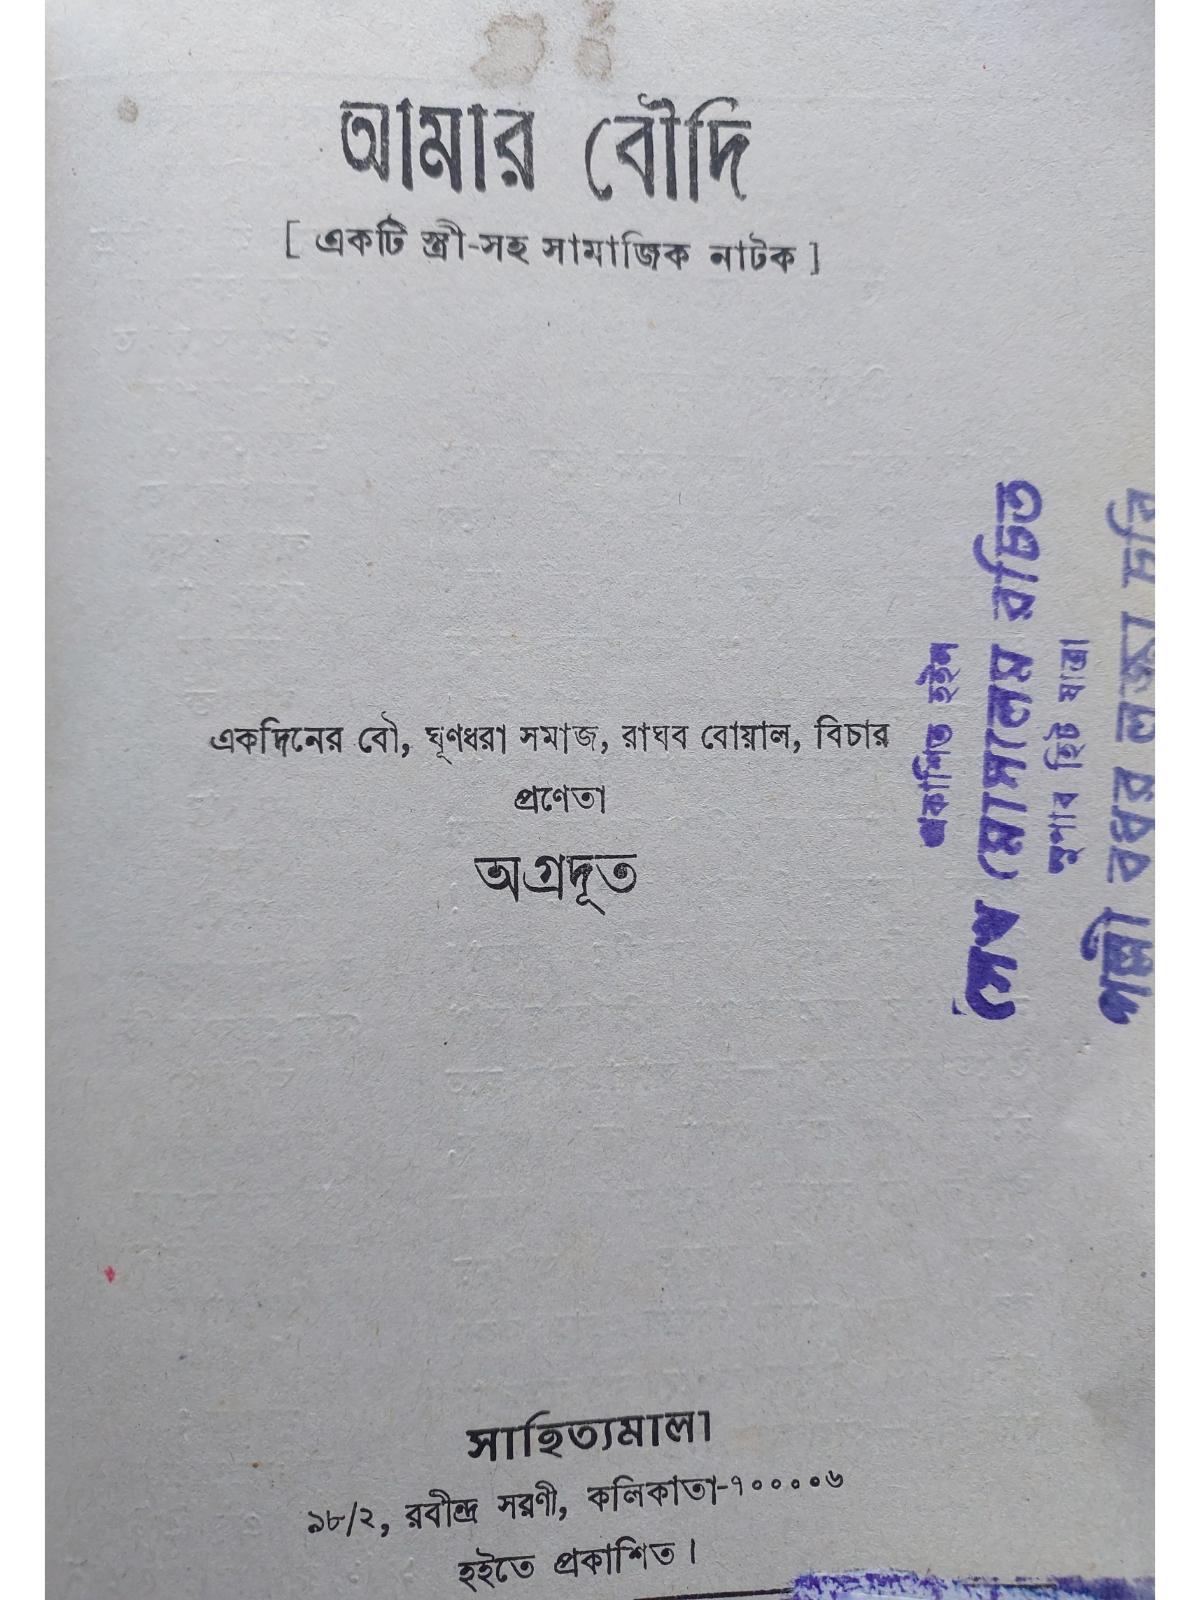 আমার বৌদি
[ একটি স্ত্রী-সহ সামাজিক নাটক ]
একদিনের বৌ, ঘূণধরা সমাজ, রাঘব বোয়াল, বিচার
প্রণেতা
অগ্রদূত
প্রকাশিত হইল
সেখ মোসলেম রচিত
সুপার হিট যাত্রা
পল্লী বধূর লজ্জা চুরি
সাহিত্যমালা
৯৮/২, রবীন্দ্র সরণী, কলিকাতা-৭০০০০৬
হইতে প্রকাশিত।